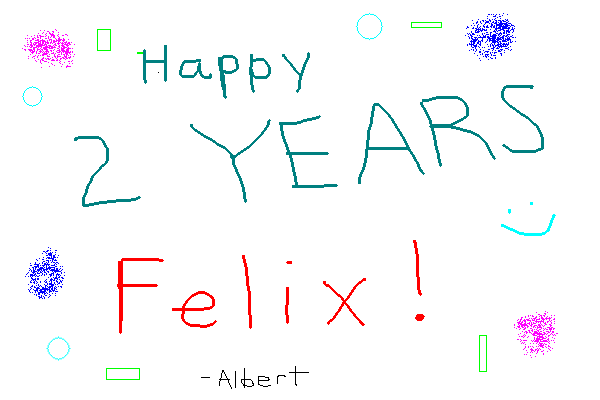 Happy
2 YEARS
Felix!
-Albert